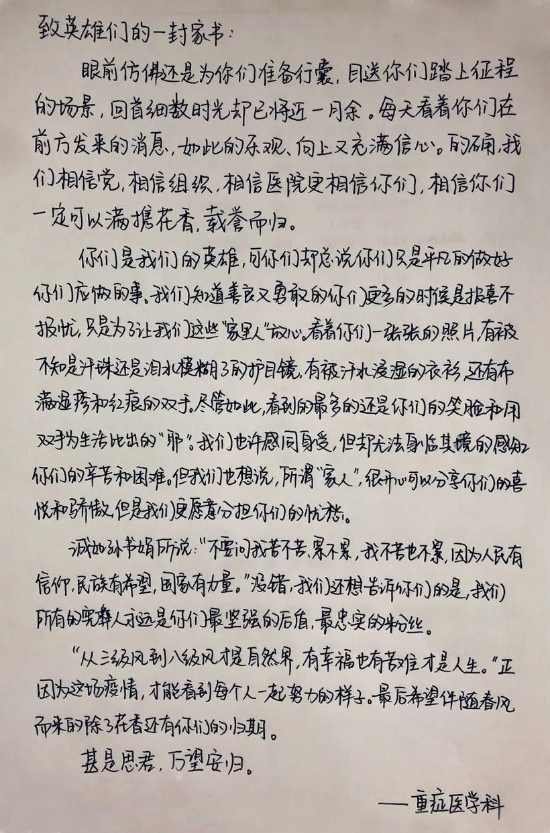 致英雄们的一封家书:
眼前仿佛还是为你们准备行囊,目送你们踏上征程
的场景,回首细数时光却已将近一月余。每天看着你们在
前方发来的消息,如此的乐观、向上又充满信心。的确,我
们相信党,相信组织,相信医院更相信你们,相信你们
一定可以满携花香,载誉而归。
你们是我们的英雄,可你们却总说你们只是平凡的做好
你们应做的事。我们知道善良又勇敢的你们更多的时候是报喜不
报忧,只是为了让我们这些“家里人”放心。看着你们一张张的照片,有被
不知是汗珠还是泪水模糊了的护目镜,有被汗水浸湿的衣衫,还有布
满湿疹和红痕的双手。尽管如此,看到的最多的还是你们的笑脸和用
双手为生活比出的“耶”。我们也许感同身受,但却无法身临其境的感知
你们的辛苦和困难。但我们也想说,所谓“家人”,很开心可以分享你们的喜
悦和骄傲,但是我们更愿意分担你们的忧愁。
诚如孙书娟所说:“不要问我苦不苦、累不累,我不苦也不累,因为人民有
信仰,民族有希望,国家有力量。”没错,我们还想告诉你们的是,我们
所有的人永远是你们最坚强的后盾,最忠实的粉丝。
“从三级风到八级风才是自然界,有幸福也有苦难才是人生。”正
因为这场疫情,才能看到每个人一起努力的样子。最后希望伴随春风
而来的除了花香还有你们的归期。
甚是思君,万望安归。
——重症医学科